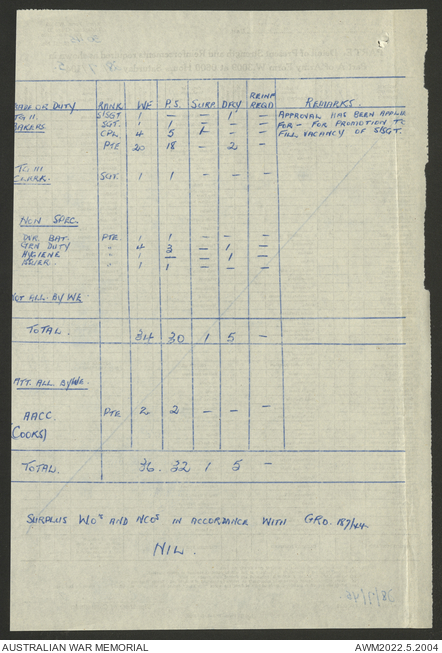 RANK WE P.S. SURP DFY REINF REQD REMARKS.
TG II. S/SGT 1 — — 1 — APPROVAL HAS BEEN
BAKERS. SGT. 1 1 — — — FOR — FOR PROMOTION TO
CPL. 4 5 1 — — FILL VACANCY OF S/SGT.
PTE 20 18 — 2 —
TG III
CLERK. SGT. 1 1 — — —
NON SPEC.
BAT. PTE. 1 1 — — —
GEN DUTY " 4 3 — 1 —
HYGIENE " 1 — — 1 —
" 1 1 — — —
NOT ALL. BY WE
TOTAL. 34 30 1 5 —
ATT. ALL. BY WE.
AACC PTE 2 2 — — —
(COOKS)
TOTAL. 36. 32 1 5 —
SURPLUS WOs AND NCOs IN ACCORDANCE WITH GRO. 187/44.
NIL.
AUSTRALIAN WAR MEMORIAL
AWM2022.5.2004